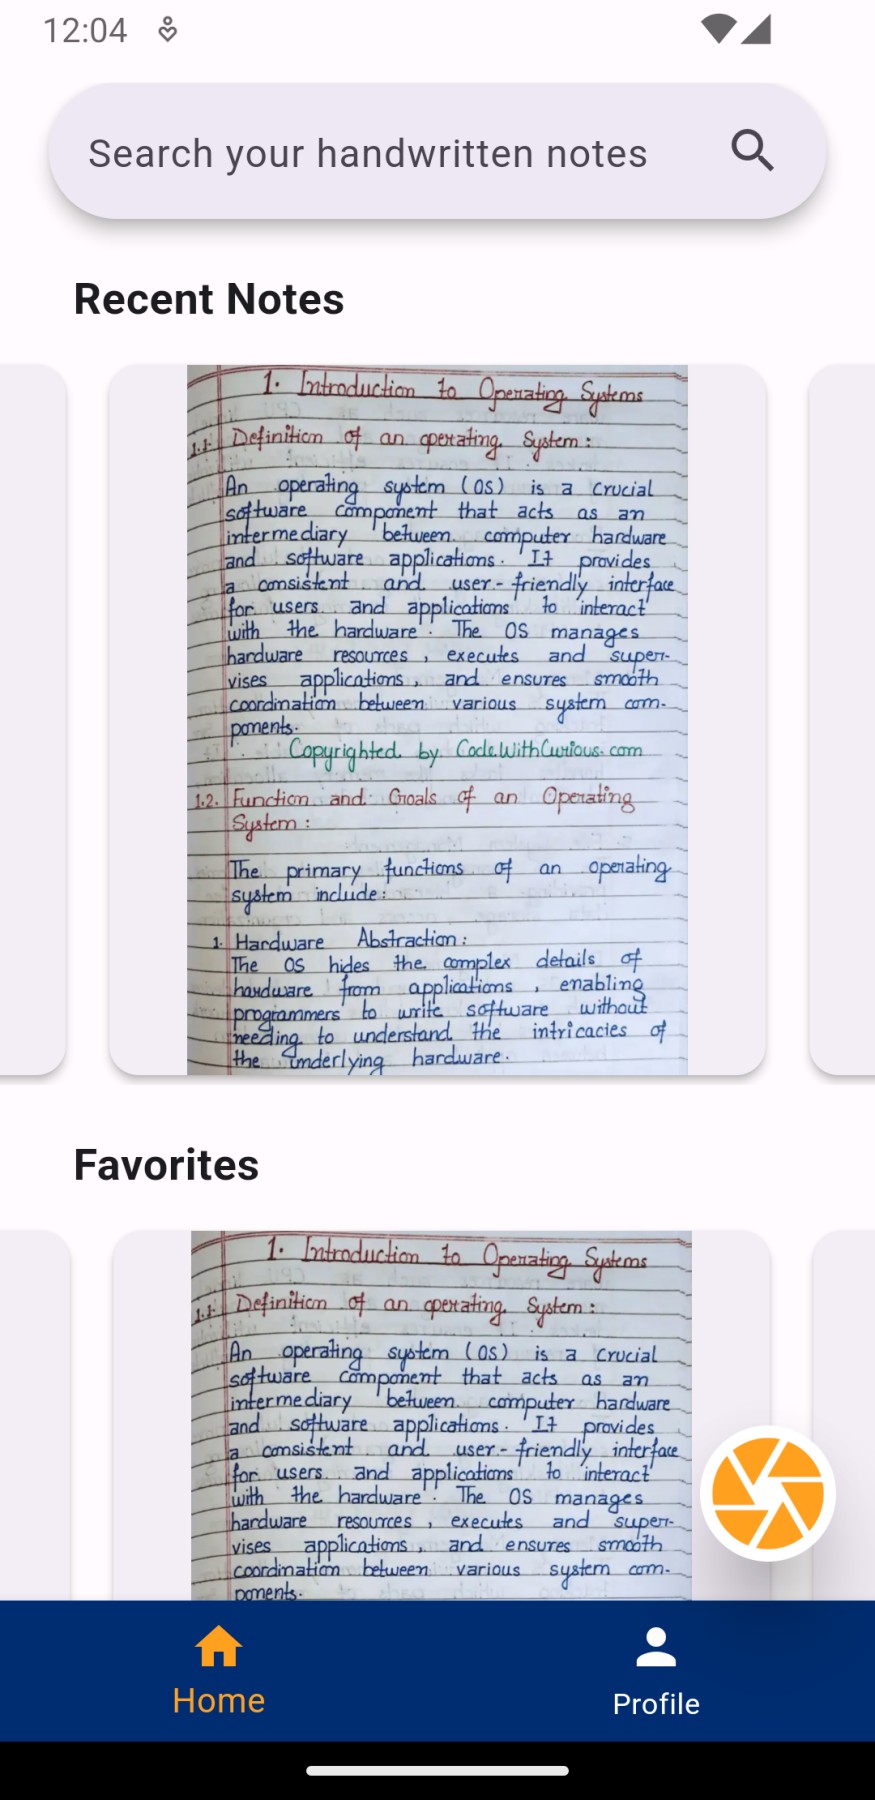 12:04
Search your handwritten notes
Recent Notes
1. Introduction to Operating Systems
1.1. Definition of an operating System :
An operating system (OS) is a crucial
software component that acts as an
intermediary between computer hardware
and software applications. It provides
a consistent and user-friendly interface
for users and applications to interact
with the hardware. The OS manages
hardware resources, executes and super-
vises applications, and ensures smooth
coordination between various system com-
ponents.
Copyrighted by CodeWithCurious.com
1.2. Function and Goals of an Operating
System :
The primary functions of an operating
system include:
1. Hardware Abstraction :
The OS hides the complex details of
hardware from applications, enabling
programmers to write software without
needing to understand the intricacies of
the underlying hardware.
Favorites
1. Introduction to Operating Systems
1.1. Definition of an operating System :
An operating system (OS) is a crucial
software component that acts as an
intermediary between computer hardware
and software applications. It provides
a consistent and user-friendly interface
for users and applications to interact
with the hardware. The OS manages
hardware resources, executes and super-
vises applications, and ensures smooth
coordination between various system com-
ponents.
Home
Profile